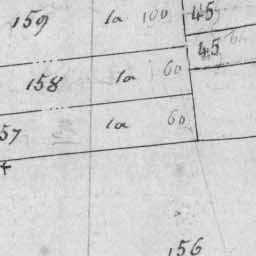 159 1a 100 45
45
158 1a 60
57 1a 60
156